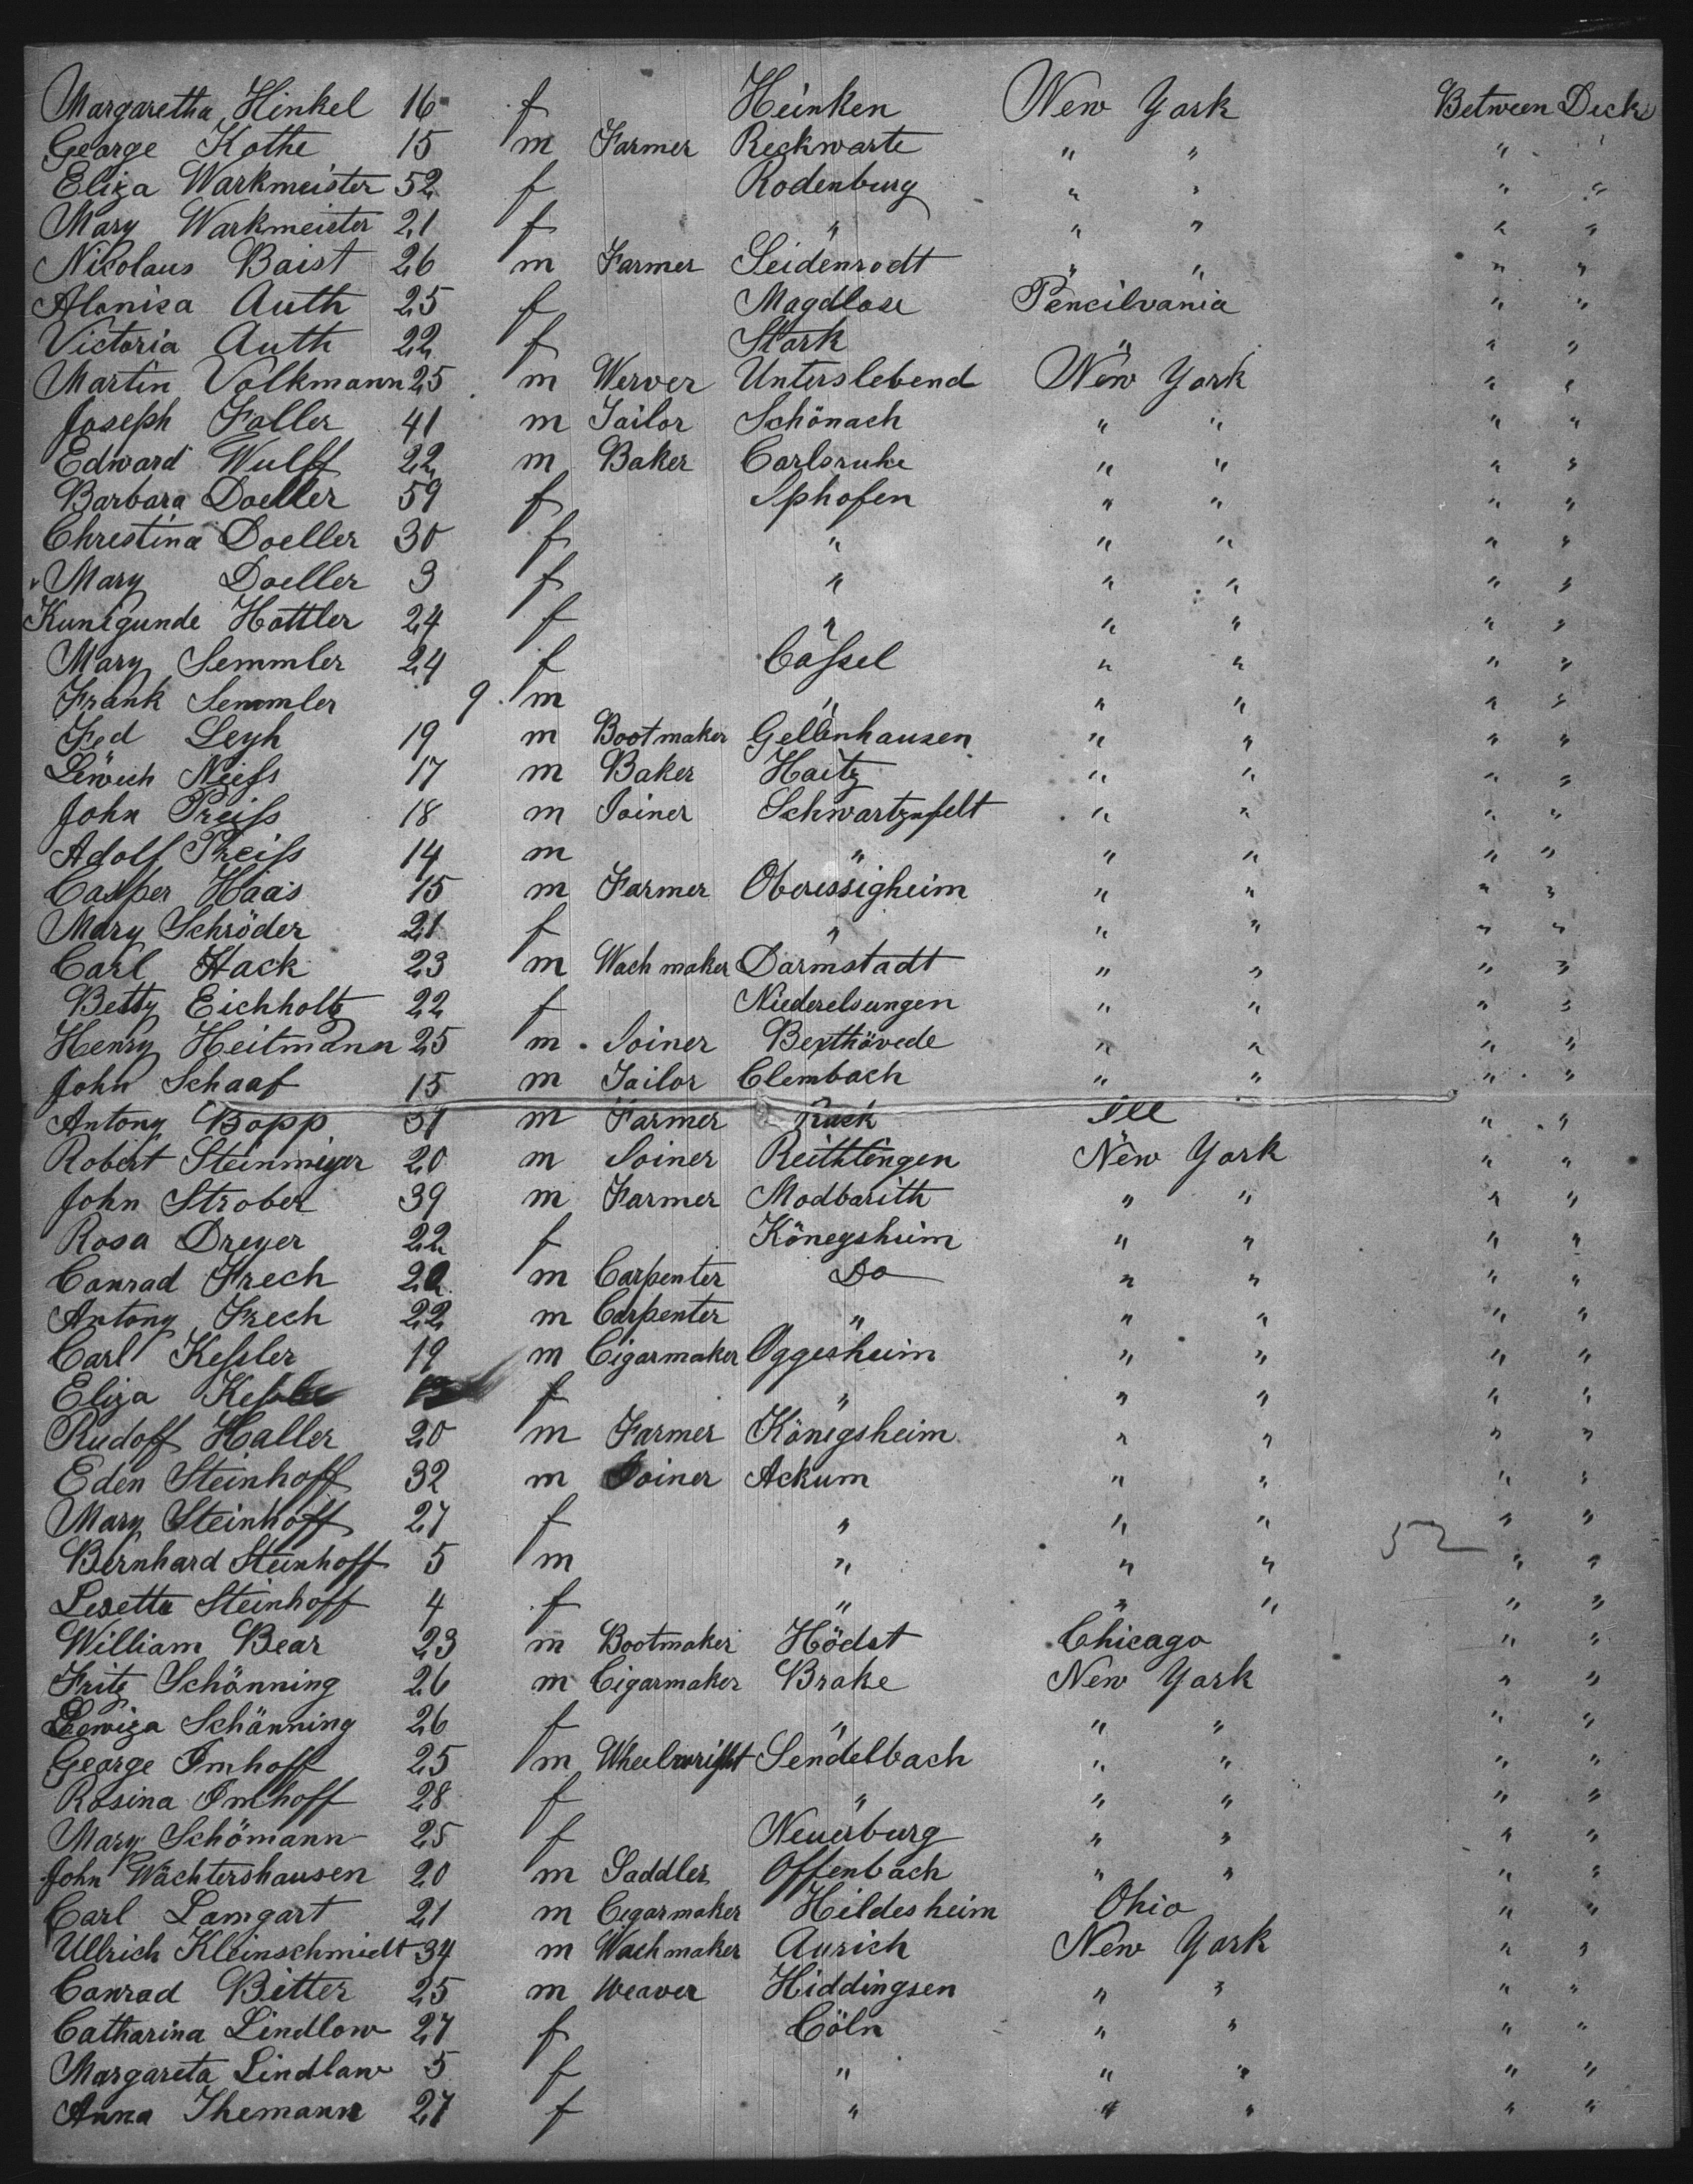 Margaretha Hinkel 16 f Heinken New York Between Deck
George Kothe 15 m Farmer Reckwarte " " " "
Eliza Warkmeister 52 f Rodenburg " " " "
Mary Warkmeister 21 f " " " " "
Nicolaus Baist 26 m Farmer Seidenrodt " " " "
Alonisa Auth 25 f Magdlose Pencilvania " "
Victoria Auth 22 f Stork " " "
Martin Volkmann 25 m Werver Unterslebend New York " "
Joseph Faller 41 m Tailor Schönach " " " "
Edward Wulff 22 m Baker Carlsruhe " " " "
Barbara Doeller 59 f Iphofen " " " "
Chrestina Doeller 30 f " " " " "
Mary Doeller 3 f " " " " "
Kunigunde Hottler 24 f " " " " "
Mary Semmler 24 f Caſsel " " " "
Frank Semmler 9 m " " " " "
Fed Leyh 19 m Bootmaker Gellenhausen " " " "
Lewich Nieſs 17 m Baker Haitz " " " "
John Preiſs 18 m Joiner Schwartznfelt " " " "
Adolf Preiſs 14 m " " " " "
Casper Haas 15 m Farmer Oberissigheim " " " "
Mary Schröder 21 f " " " " "
Carl Hack 23 m Wachmaker Darmstadt " " " "
Betty Eichholtz 22 f Niederelsungen " " " "
Henry Heitmann 25 m Joiner Bexthövede " " " "
John Schaaf 15 m Tailor Clembach " " " "
Antony Bopp 31 m Farmer Ruck Ill " "
Robert Steinmeyer 20 m Joiner Reithlingen New York " "
John Strober 39 m Farmer Modbarith " " " "
Rosa Dreyer 22 f Könegsheim " " " "
Conrad Frech 20 m Carpenter Do " " " "
Antony Frech 22 m Carpenter " " " " "
Carl Keſsler 19 m Cigarmaker Oggersheim " " " "
Eliza f " " " " "
Rudoff Haller 20 m Farmer Königsheim " " " "
Eden Steinhoff 32 m Joiner Ackum " " " "
Mary Steinhoff 27 f " " " " "
52
Bernhard Steinhoff 5 m " " " " "
Lesette Steinhoff 4 f " " " " "
William Bear 23 m Bootmaker Hödst Chicago " "
Fritz Schönning 26 m Cigarmaker Brake New York " "
Lewiza Schänning 26 f " " " " "
George Imhoff 25 m Wheelwright Sendelbach " " " "
Rosina Imhoff 28 f " " " " "
Mary Schömann 25 f Neuerburg " " " "
John Wächtershausen 20 m Saddler Offenbach " " " "
Carl Lamgart 21 m Cegarmaker Hildesheim Ohio " "
Ullrich Kleinschmidt 34 m Wachmaker Aurich New York " "
Conrad Bitter 25 m Weaver Hiddingsen " " " "
Catharina Lindlow 27 f Cöln " " " "
Margareta Lindlaw 5 f " " " " "
Anna Themann 27 f " " " " "